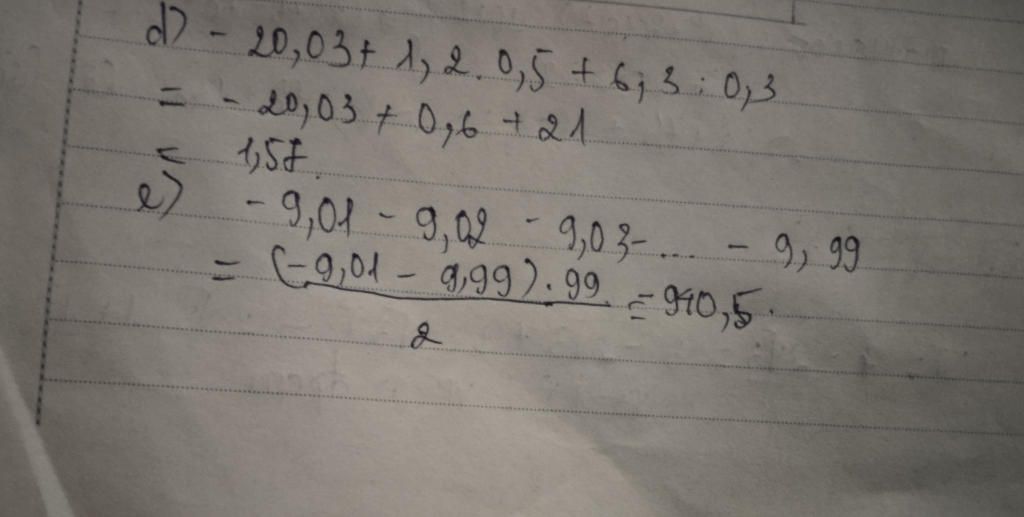 d) - 20,03 + 1,2 . 0,5 + 6,3 : 0,3
= - 20,03 + 0,6 + 21
= 1,57.
e) - 9,01 - 9,02 - 9,03 - .... - 9,99
= (-9,01 - 9,99) . 99 / 2 = -940,5.